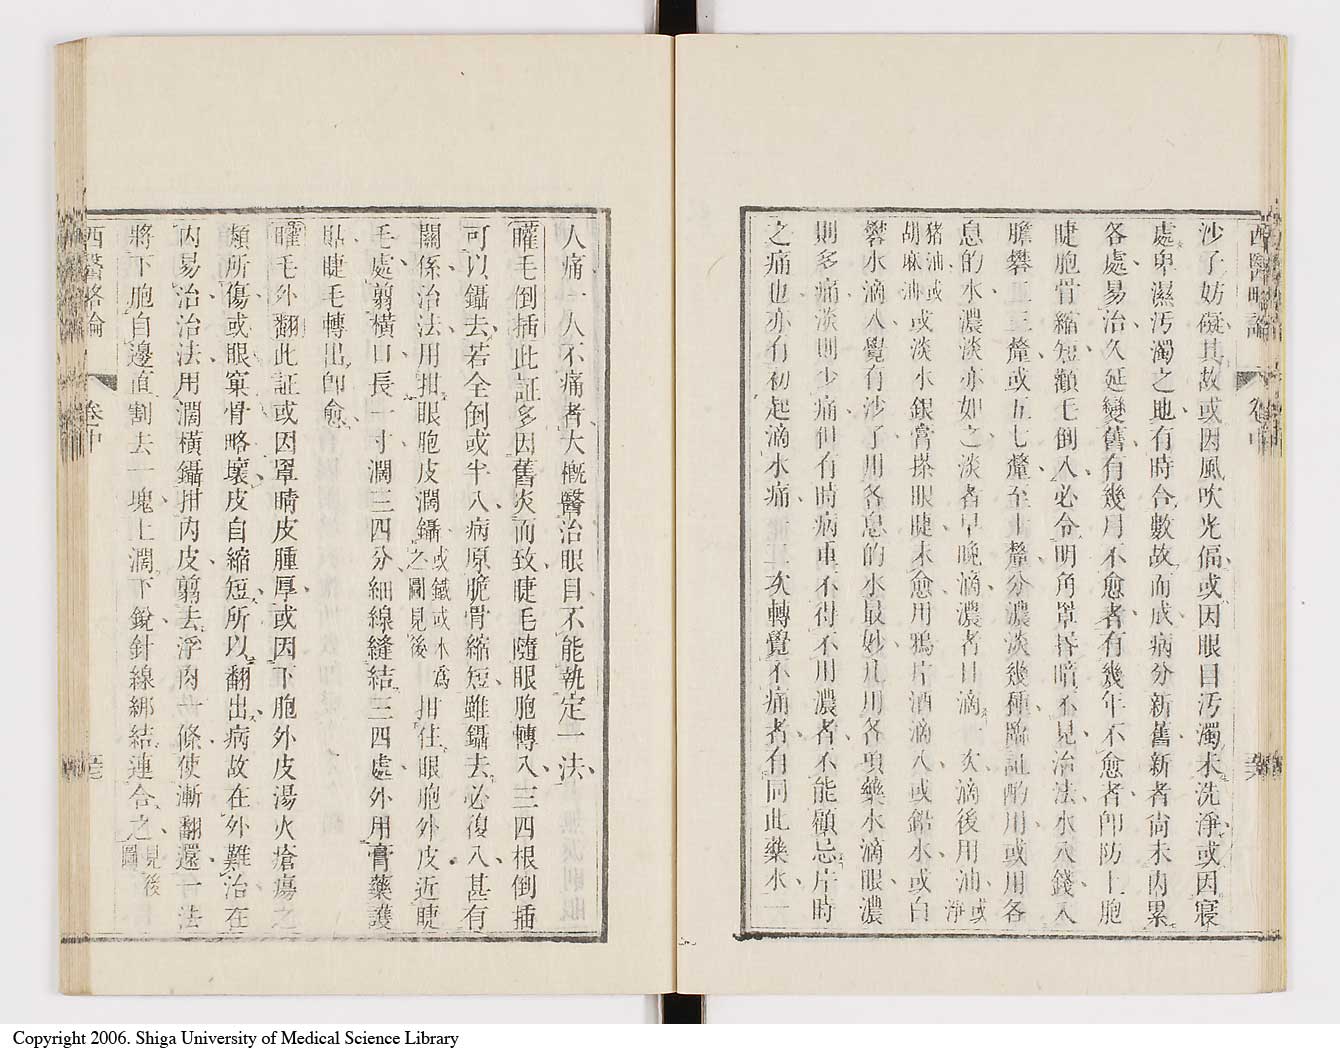 西醫略論 卷中
沙子妨礙其故或因風吹光偪或因眼目汚濁未洗淨或因寢
處卑濕汚濁之地有時合數故而成病分新舊新者尚未內累
各處易治久延變舊有幾月不愈者有幾年不愈者卽防上胞
睫胞骨縮短顴毛倒入必令明角罩昏暗不見治法水八錢入
膽礬二三釐或五七釐至十釐分濃淡幾種臨証酌用或用各
息的水濃淡亦如之淡者早晚滴濃者日滴一次滴後用油或淨
猪油或胡麻油或淡水銀膏搽眼睫未愈用鴉片酒滴入或鉛水或白
礬水滴入覺有沙子用各息的水最妙凡用各項藥水滴眼濃
則多痛淡則少痛但有時病重不得不用濃者不能顧忌片時
之痛也亦有初起滴水痛一二次轉覺不痛者有同此藥水一
人痛一人不痛者大概醫治眼目不能執定一法
睫毛倒插此証多因舊炎而致睫毛隨眼胞轉入三四根倒插
可以鑷去若全倒或半入病原脆骨縮短雖鑷去必復入甚有
關係治法用拑眼胞皮濶鑷或鐵或木爲之圖見後拑住眼胞外皮近睫
毛處剪橫口長一寸濶三四分細線縫結三四處外用膏藥護
貼睫毛轉出卽愈
睫毛外翻此証或因罩睛皮腫厚或因下胞外皮湯火瘡瘍之
類所傷或眼窠骨略壞皮自縮短所以翻出病故在外難治在
內易治治法用濶橫鑷拑內皮剪去浮肉一條使漸翻還一法
將下胞自邊直割去一塊上濶下銳針線綁結連合之見後圖
西醫略論 卷中
Copyright 2006. Shiga University of Medical Science Library